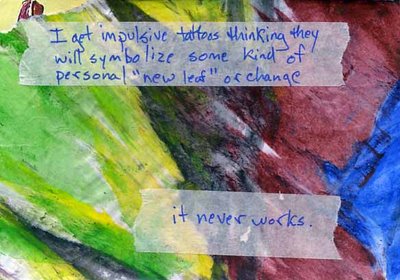 I get impulsive tattoos thinking they
will symbolize some kind of
personal "new leaf" or change
it never works.